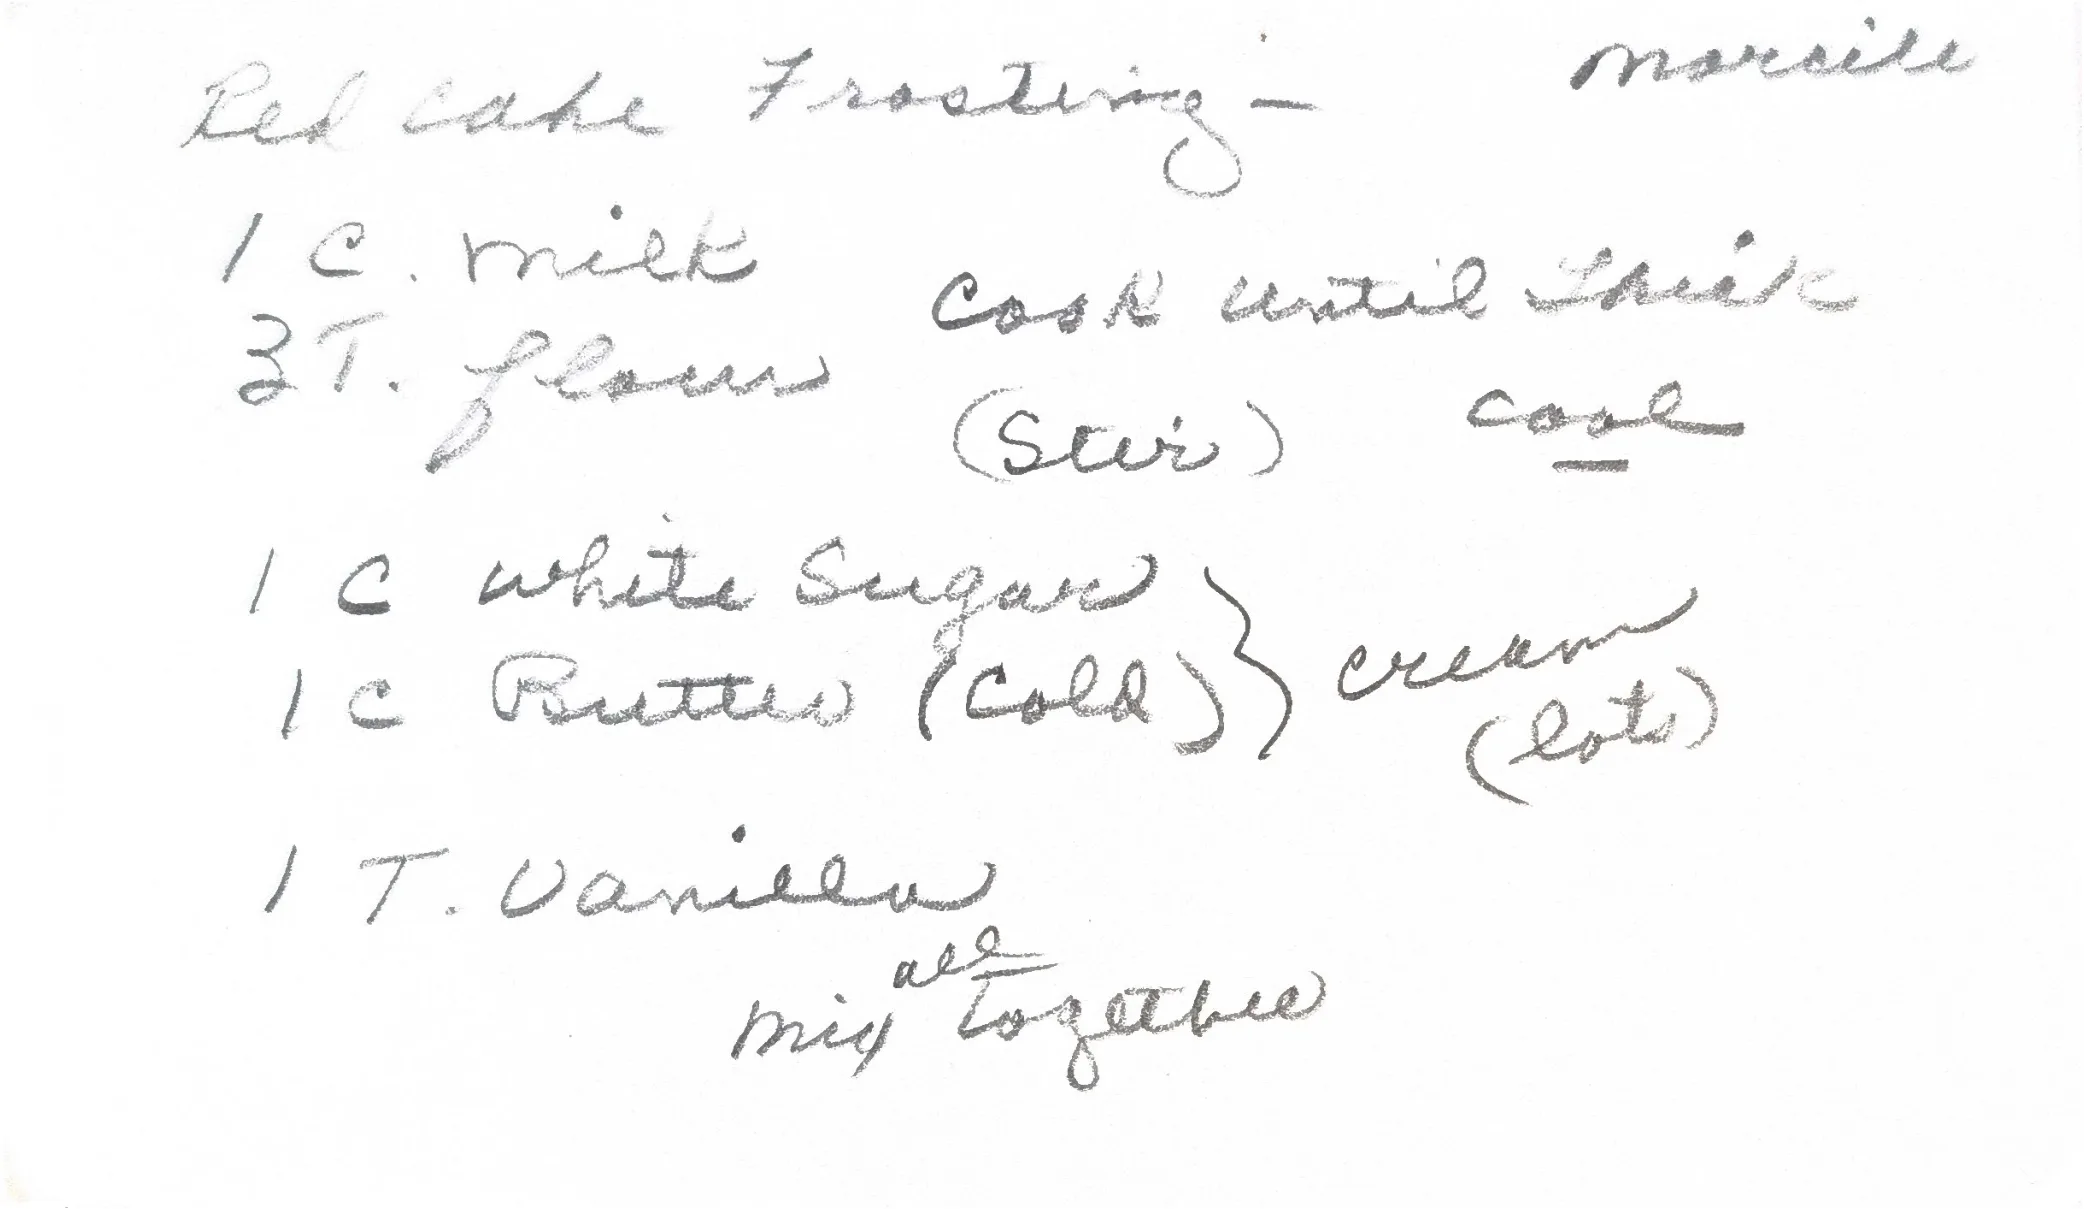 Red Cake Frosting — Marcile
1 C. Milk
Cook until Thick
3 T. flour
(Stir) cool
1 C white Sugar
1 C Butter (Cold) } cream
(lots)
1 T. Vanilla
all
Mix Together